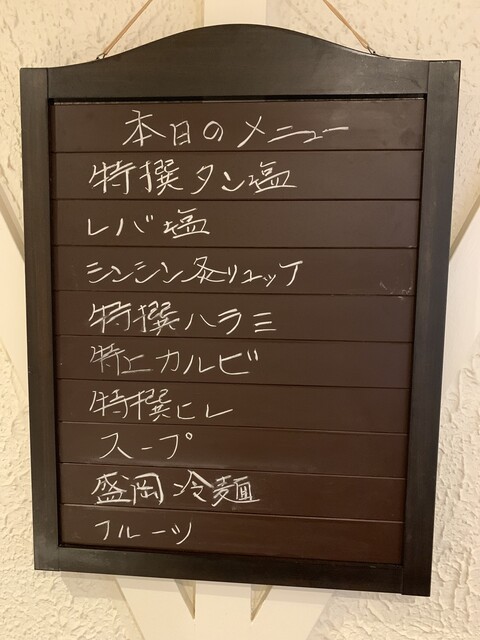 本日のメニュー
特撰タン塩
レバ塩
シンシン炙リュッケ
特撰ハラミ
特上カルビ
特撰ヒレ
スープ
盛岡冷麺
フルーツ